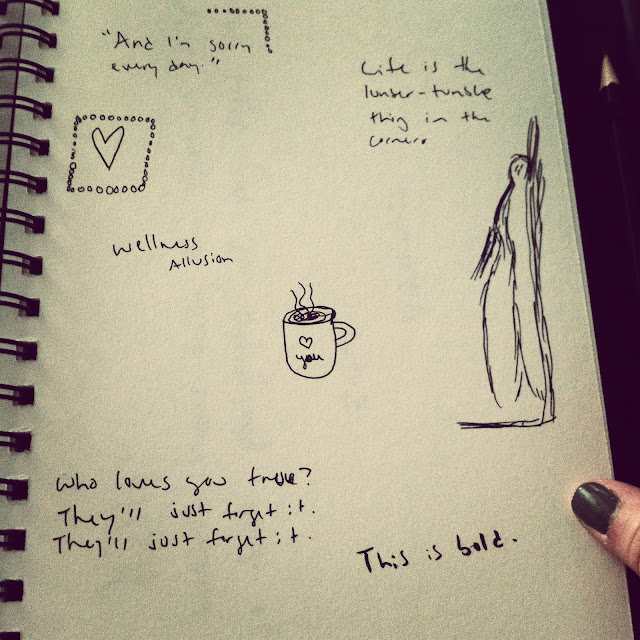 "And I'm sorry
every day."
Life is the
lunser-tumble
thing in the
corners
wellness
Allusion
you
who loves you true?
They'll just forget it.
They'll just forget it.
This is bold.